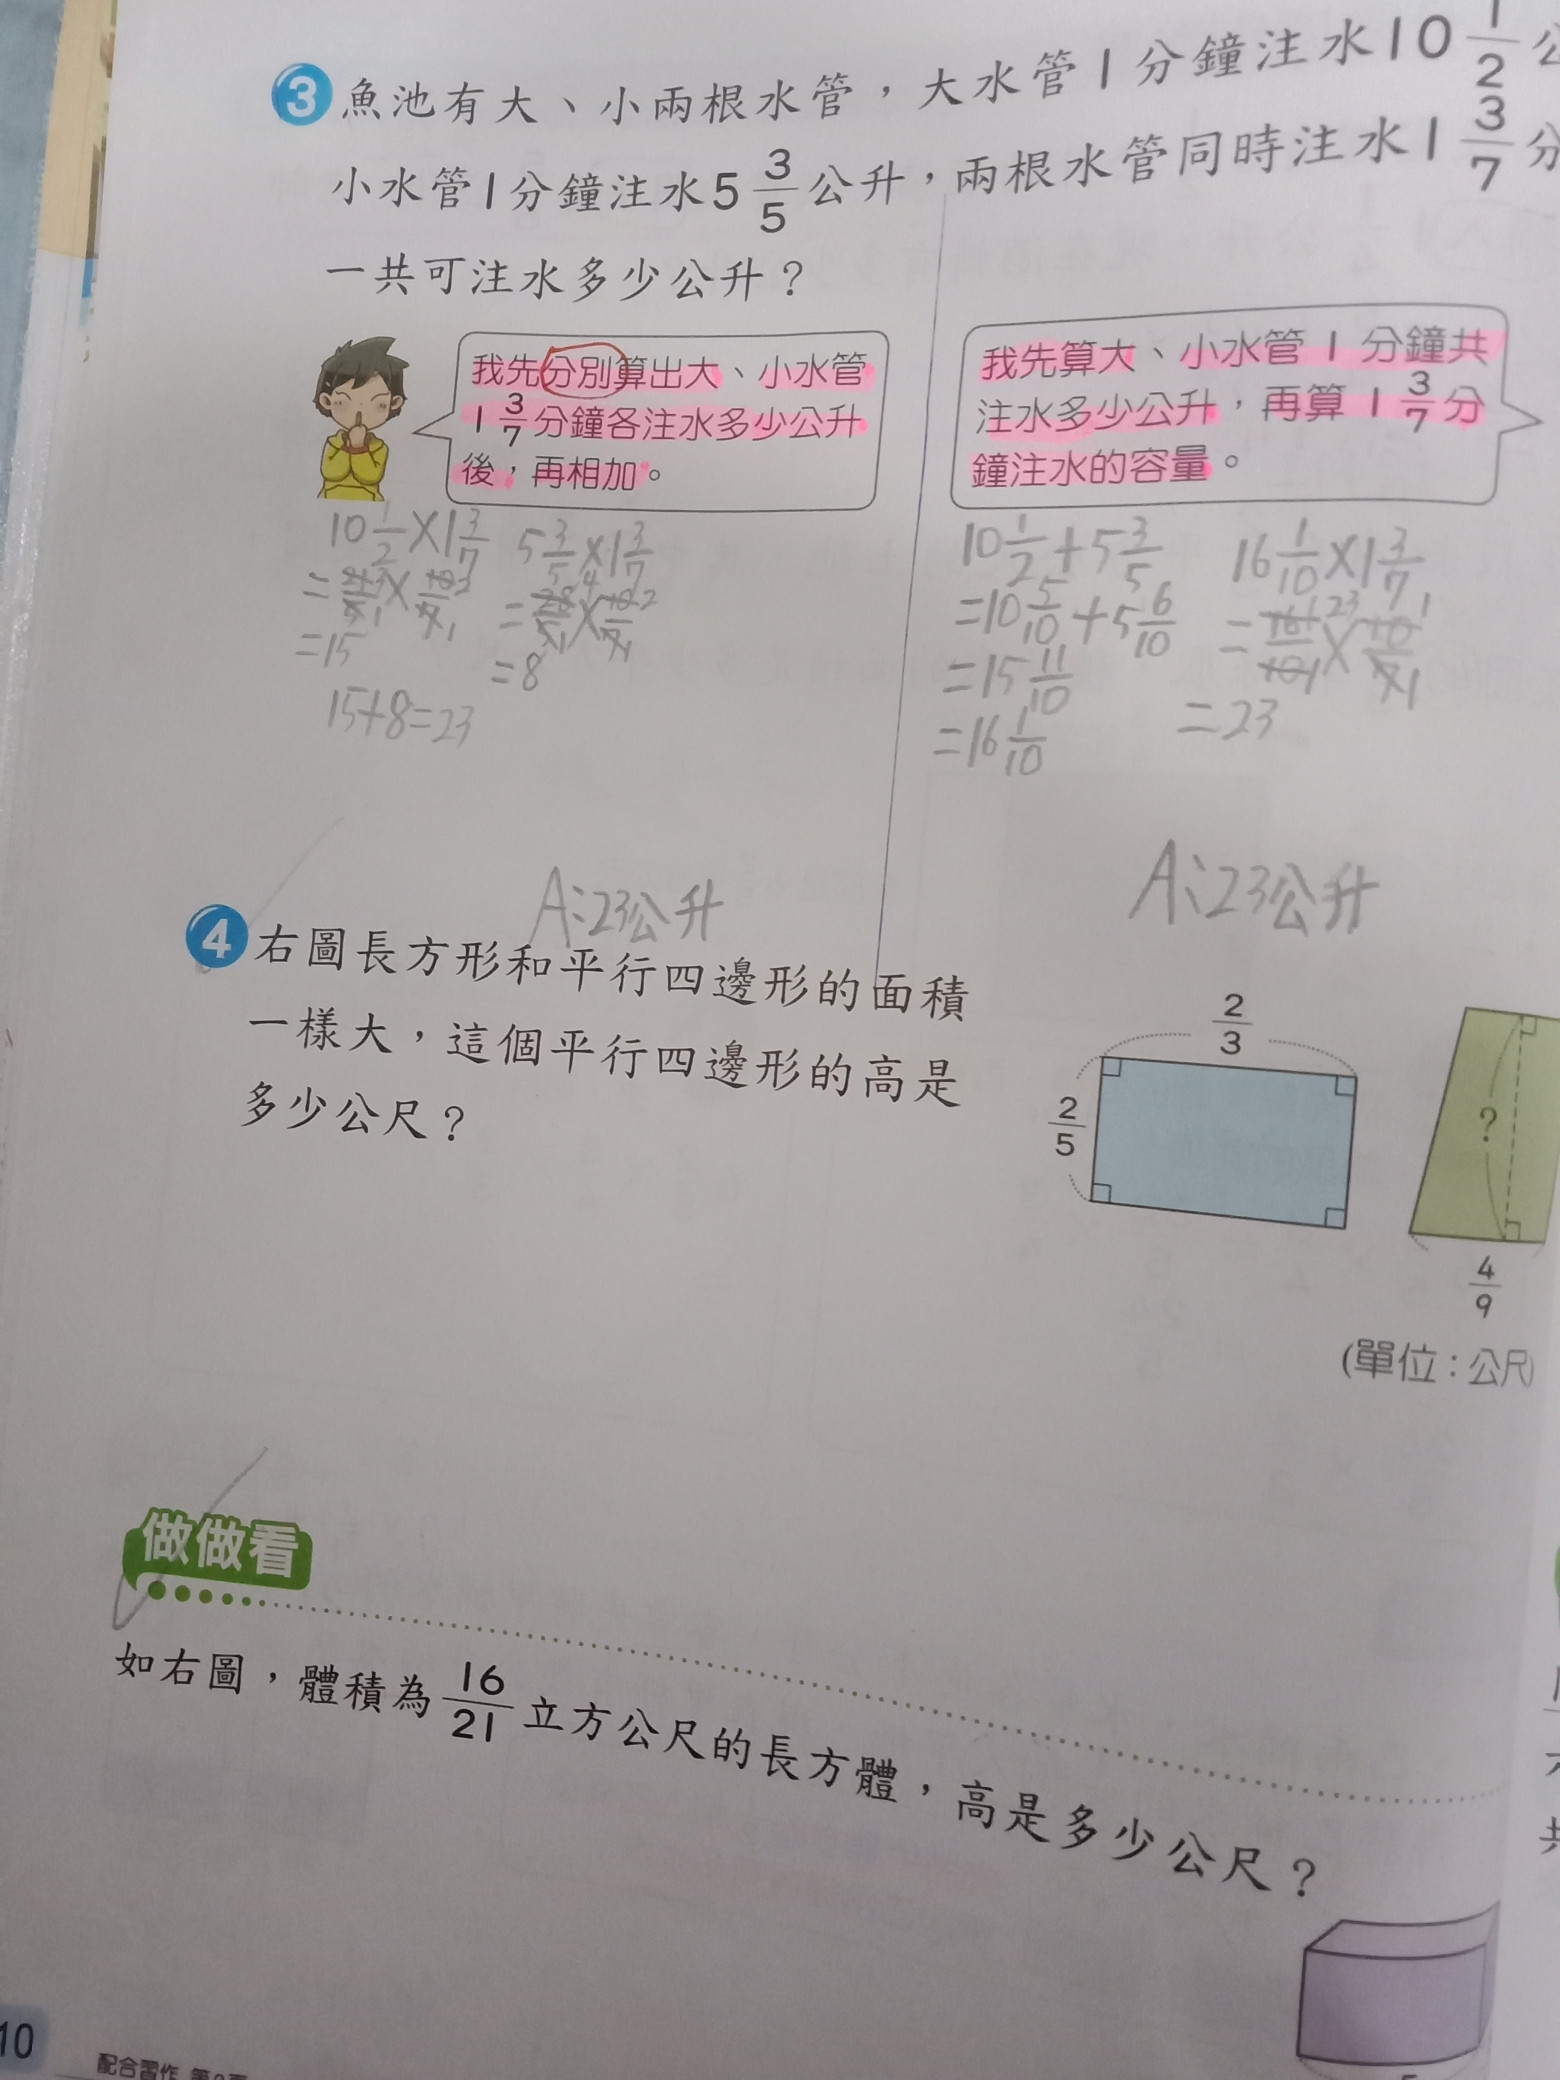 3 魚池有大、小兩根水管，大水管1分鐘注水10 1/2 公
小水管1分鐘注水5 3/5 公升，兩根水管同時注水1 3/7 分
一共可注水多少公升？
我先分別算出大、小水管
1 3/7 分鐘各注水多少公升
後，再相加。
我先算大、小水管 1 分鐘共
注水多少公升，再算 1 3/7 分
鐘注水的容量。
10 1/2 × 1 3/7
= 21 3/2 1 × 10 2/7 1
=15
5 3/5 × 1 3/7
= 28 4/5 1 × 10 2/7 1
=8
15+8=23
A:23公升
10 1/2 + 5 3/5
=10 5/10 + 5 6/10
=15 11/10
=16 1/10
16 1/10 × 1 3/7
= 161 23/10 1 × 10 1/7 1
=23
A:23公升
4 右圖長方形和平行四邊形的面積
一樣大，這個平行四邊形的高是
多少公尺？
2/3
2/5
?
4/9
(單位：公尺)
做做看
如右圖，體積為 16/21 立方公尺的長方體，高是多少公尺？
10
配合習作 第